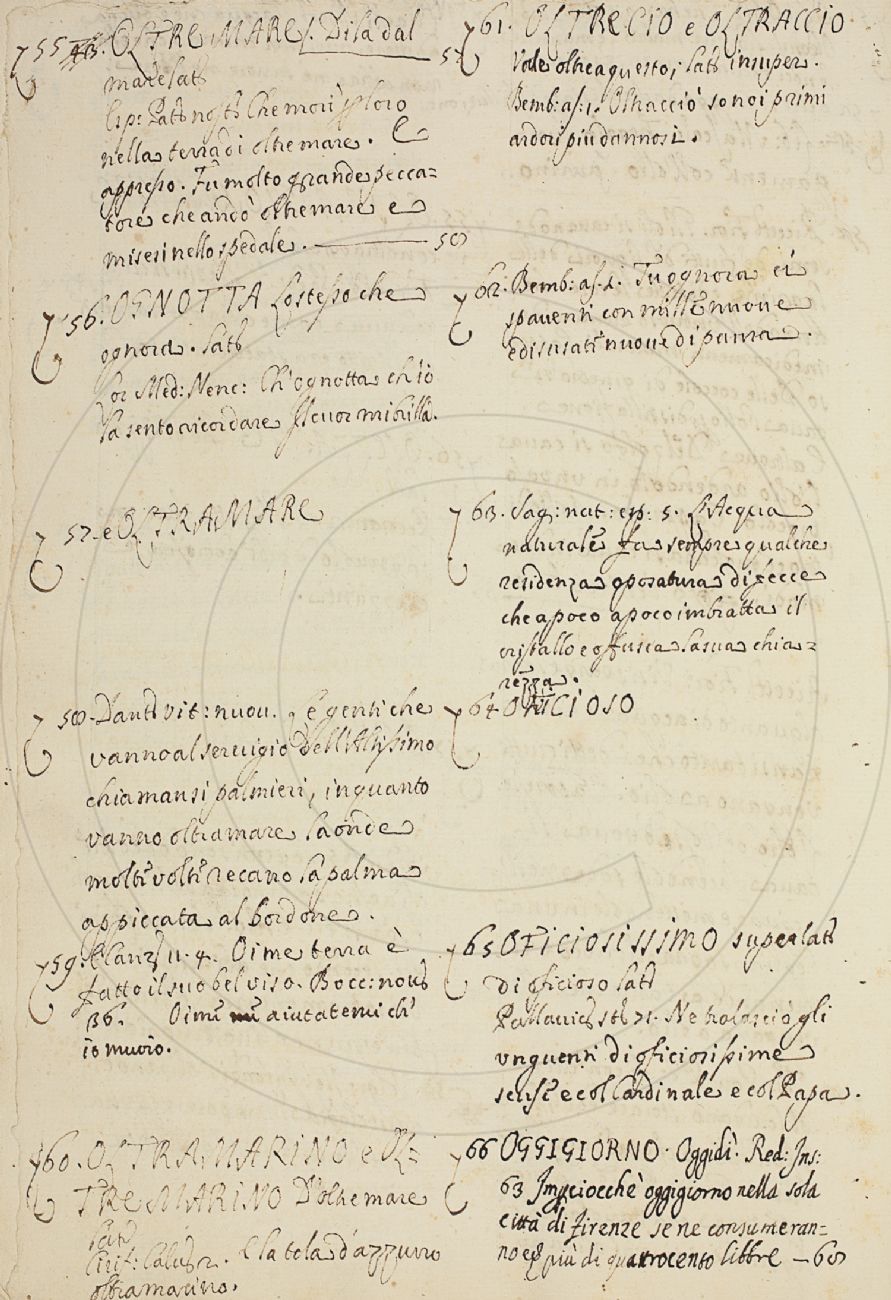 755. OLTRE MARE. Di là dal
mare lat.
nella terra di oltre mare. E
appresso. Fu molto grande pecca=
tore che andò oltremare e
misesi nello spedale. — 58
756. OGNOTTA Lo stesso che
ognora. Lat.
Lor Med: Nenc: Ch'ognotta ch'io
la sento ricordare Il cuor mi brilla.
757. e OLTRAMARE
758. Dant. vit: nuov. Le genti che
vanno al servigio dell'Altissimo
chiamansi palmieri, inquanto
vanno oltramare laonde
molte volte recano la palma
appiccata al bordone.
759. 11. 4. Oime terra è
fatto il suo bel viso. Bocc: nov.
36. Oimè aiutatemi ch'
io muoio.
760. OLTRAMARINO e OL=
TREMARINO D'oltre mare
Lat.
Cirif: Calv. 2. E la tela d'azzurro
oltramarino.
761. OLTRECCIO e OLTRACCIO
Vale oltre a questo; Lat. insuper.
Bemb: as: 1. Oltracciò sono i primi
ardori più dannosi.
762. Bemb: as. 1. Tu ognora ci
spaventi con mille nuove
e disusate nuove di paura.
763. Sag: nat: esp: 5. L'Acqua
naturale fa sempre qualche
residenza o posatura di fecce
che a poco a poco imbratta il
cristallo e offusca la sua chia=
rezza.
764 OFICIOSO
765 OFICIOSISSIMO superlat.
di oficioso Lat.
Pallavic. 71. Ne tralasciò gli
unguenti di oficiosissime
scuse e col Cardinale e col Papa.
766 OGGIGIORNO. Oggidì. Red: Ins:
63 Imperciocchè oggigiorno nella sola
città di Firenze se ne consumeran=
no più di quattrocento libbre — 68